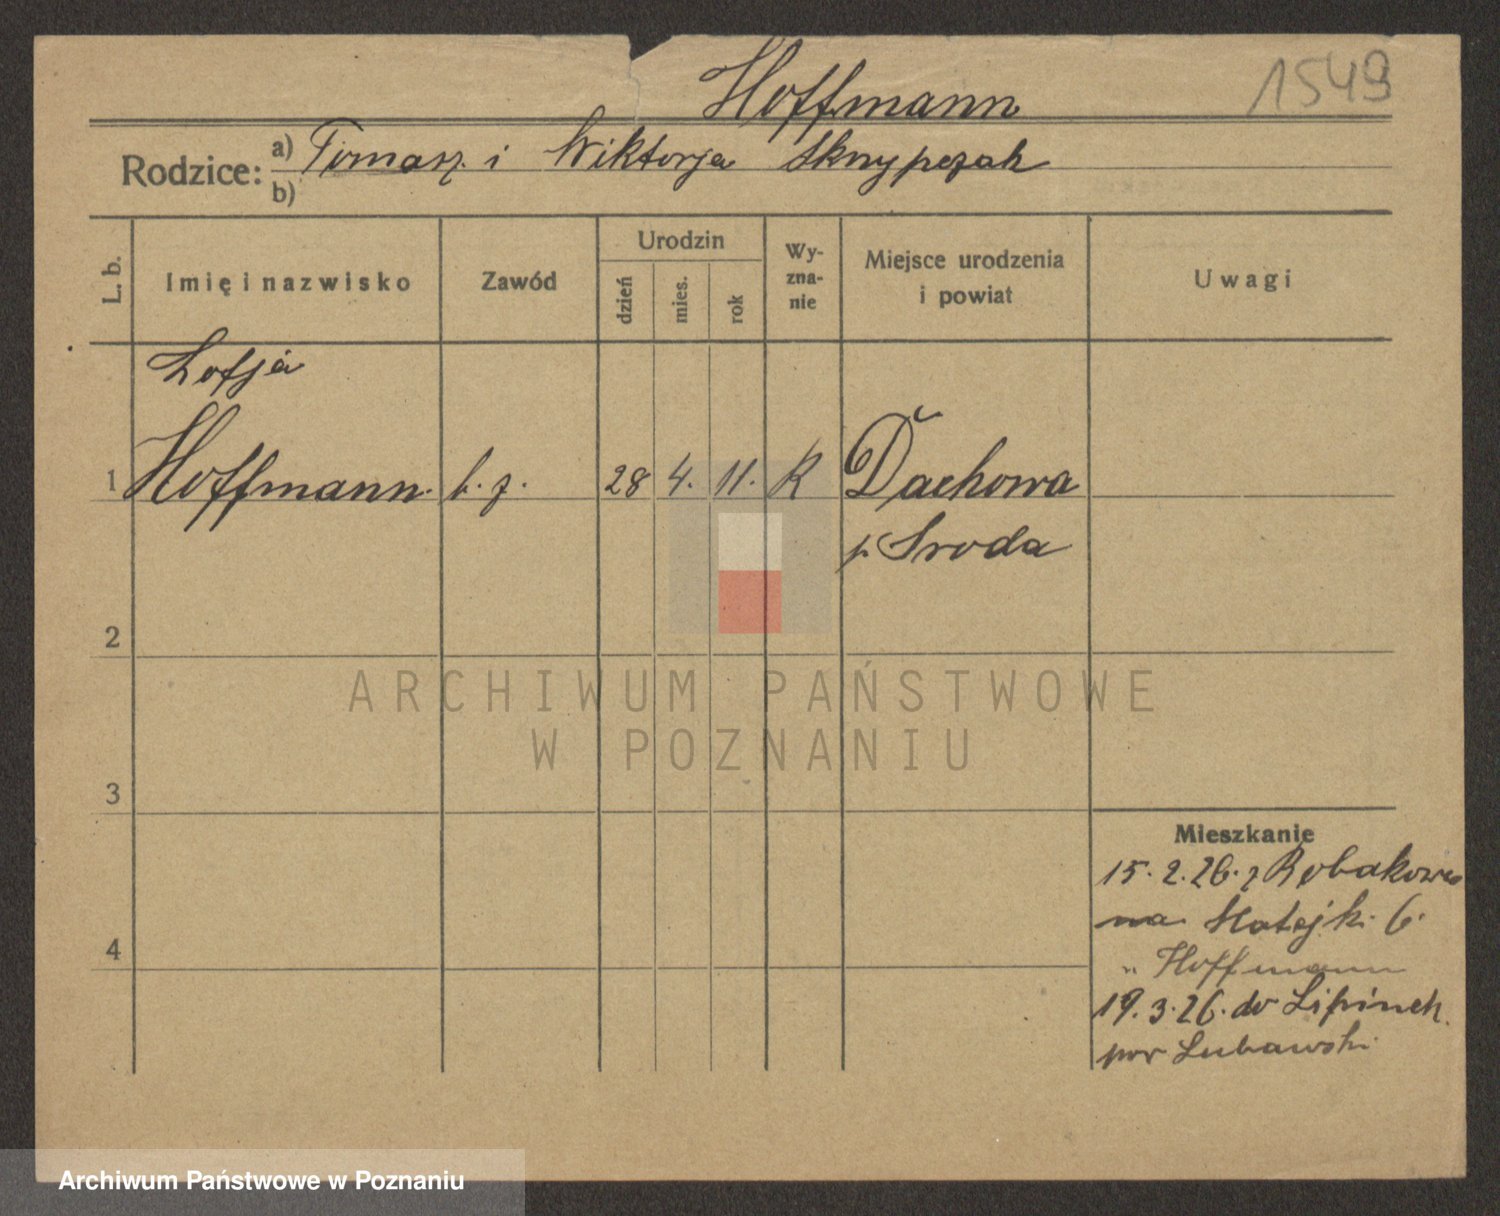 Hoffmann 1549
Rodzice: a) Tomasz i Wiktorja Skrzypczak
b)
L. b. Imię i nazwisko Zawód Urodzin dzień mies. rok Wy-zna-nie Miejsce urodzenia i powiat Uwagi
Zofja
1 Hoffmann b. z. 28 4. 11. K Dachowa
p. Sroda
2
ARCHIWUM PAŃSTWOWE
W POZNANIU
3
Mieszkanie
15. 2. 26. z Robakowo
na Matejk. 6.
" Hoffmann
4
19. 3. 26. do Lipinek
pow Lubawski
Archiwum Państwowe w Poznaniu